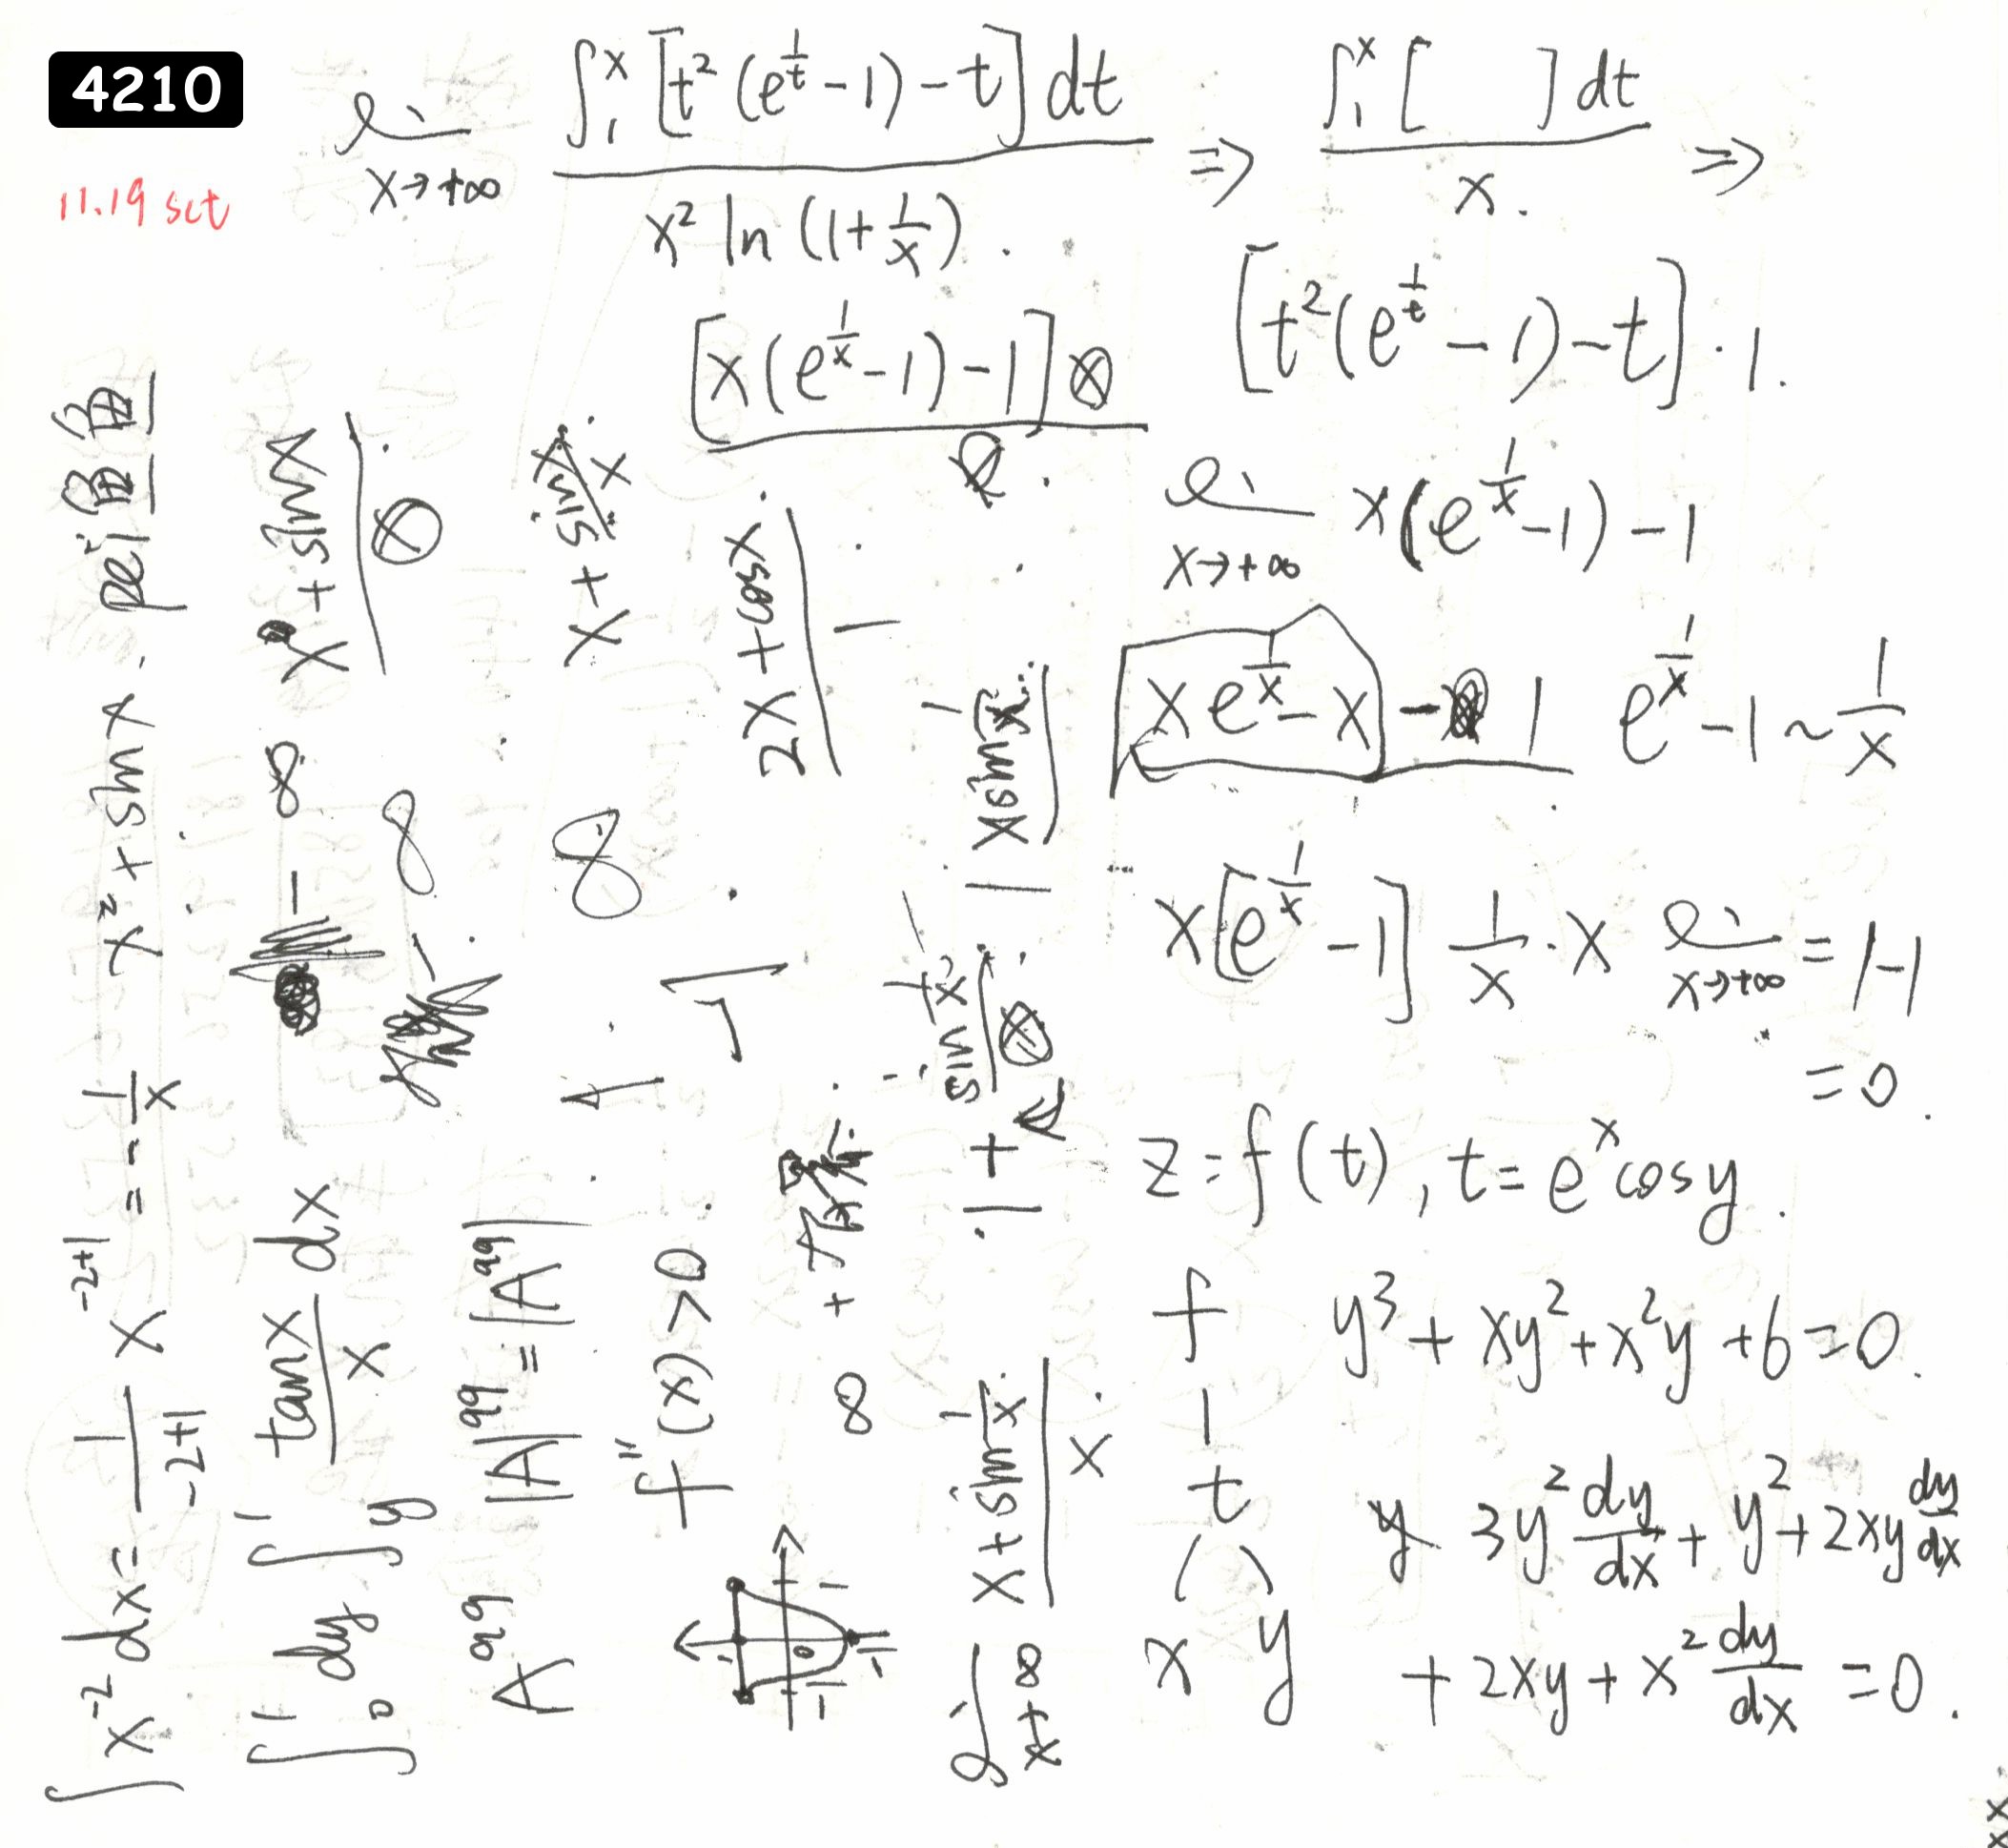 4210
11.19 sct
lim x→+∞ ∫₁ˣ [t² (e^{1/t} - 1) - t] dt / x² ln (1 + 1/x) . ⇒ ∫₁ˣ [ ] dt / x. ⇒
[t² (e^{1/t} - 1) - t] · 1.
[x (e^{1/x} - 1) - 1]
lim x→+∞ x(e^{1/x} - 1) - 1
x e^{1/x} - x - 1 e^{1/x} - 1 ~ 1/x
x [e^{1/x} - 1] 1/x · x lim x→+∞ = 1-1
= 0.
z = f(t), t = eˣ cos y.
f y³ + xy² + x²y + 6 = 0.
t
y 3y² dy/dx + y² + 2xy dy/dx
x y + 2xy + x² dy/dx = 0.
∫ x⁻² dx = 1/(-2+1) x^{-2+1} = - 1/x x² + sin x. pei鱼鱼
∫₀¹ dy ∫_y^1 tanx/x dx
- ∞ x + sin x
A⁹⁹ |A|⁹⁹ = |A⁹⁹|
x + sinx/x
f''(x) > 0
2x + cos x / 1
0
lim x→+∞ x + sin 1/x / x
1 + sin 1/x
1 x sin 1/x